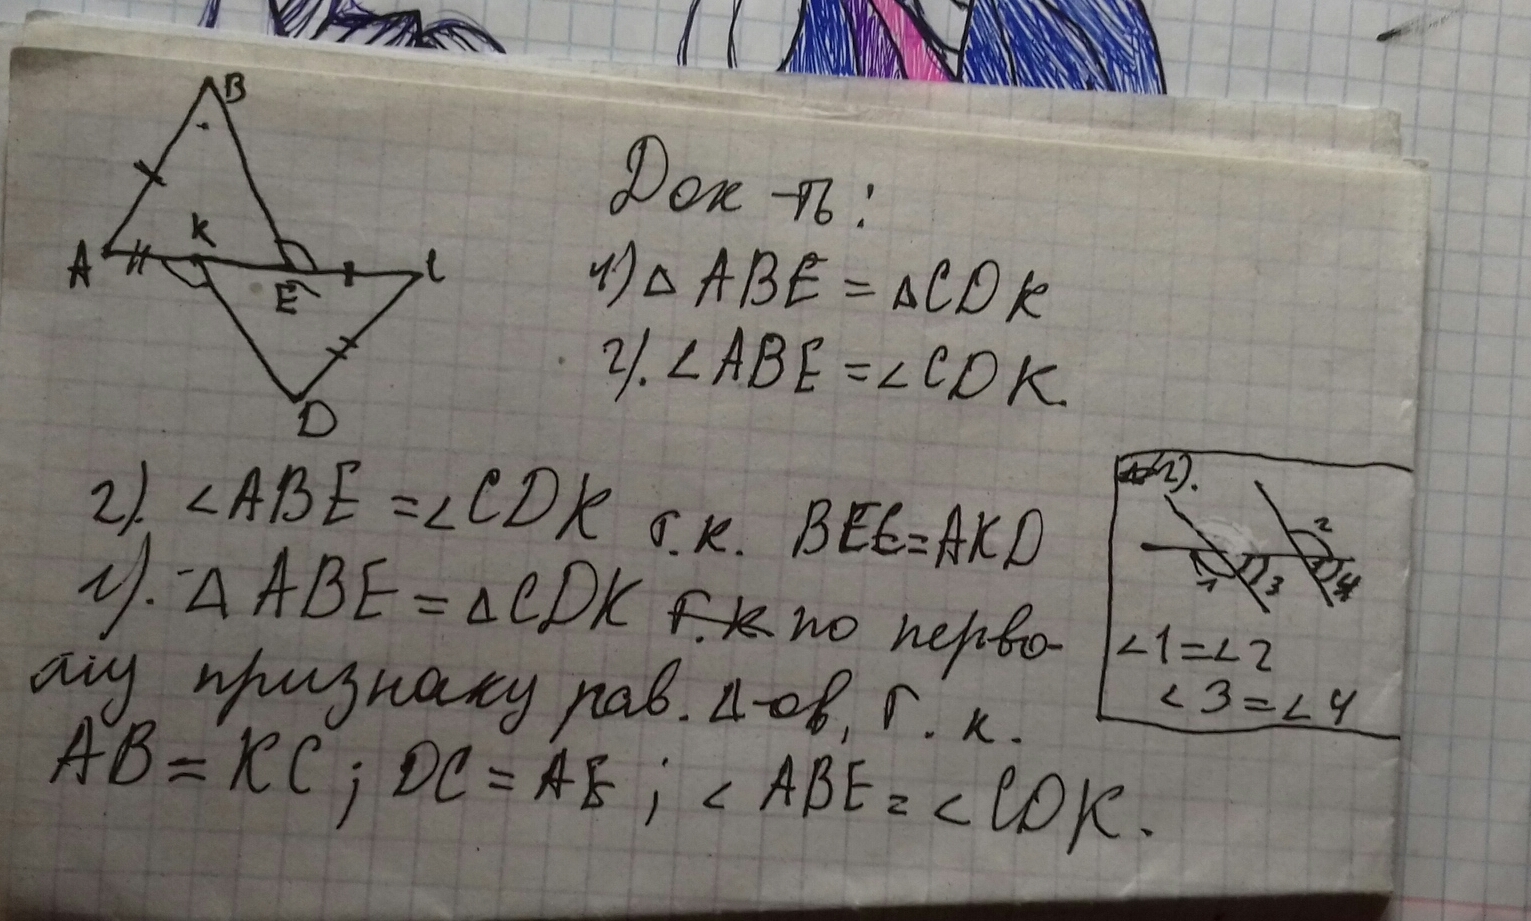 B
K
A
E
C
D
Док-ть:
1) △ ABE = △ CDK
2). ∠ ABE = ∠ CDK.
2). ∠ ABE = ∠ CDK т.к. BEC = AKD
1). △ ABE = △ CDK т.к по перво-
му признаку рав. △-ов, т. к.
AB = KC; DC = AE; ∠ ABE = ∠ CDK.
2).
2
1 3 4
∠ 1 = ∠ 2
∠ 3 = ∠ 4